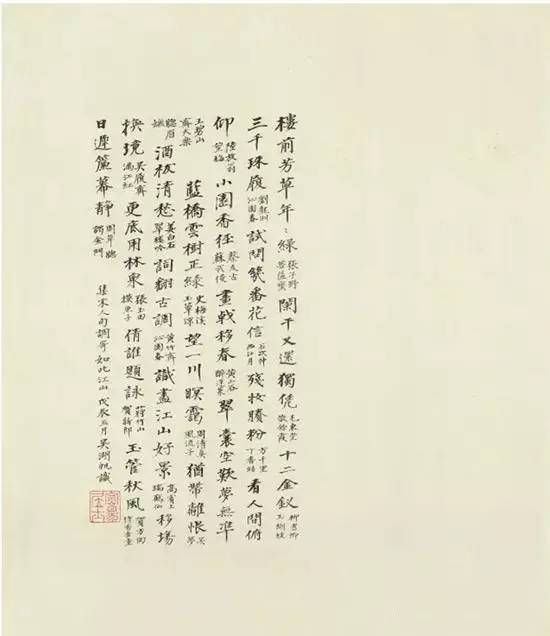 樓前芳草年〻綠 張子野菩薩蠻 闌干又還獨凭 毛東堂散餘霞 十二金釵 柳耆卿玉蝴蝶
三千珠履 劉龍洲沁園春 試問幾番花信 石次仲西江月 殘妝賸粉 万千里丁香結 看人間俯
仰 陸放翁 小園香徑 蔡友古蘇武慢 畫戟移春 黃山谷醉蓬萊 翠囊空歎夢無準
王碧山齊天樂 藍橋雲樹正綠 史梅溪玉簟涼 望一川暝靄 周清真風流子 猶帶離恨 吳夢
牕眉嫵 酒祓清愁 姜白石翠樓吟 詞翻古調 黃竹齋沁園春 識盡江山好景 高賓王瑞鶴仙 移場
換境 吳履齋滿江紅 更底用林泉 張玉田摸魚子 倩誰題詠 蔣竹山賀新郎 玉管秋風 賀方回
日遲簾幕靜 周草牕謁金門 集宋人句調寄如此江山 戊辰五月吳湖帆識